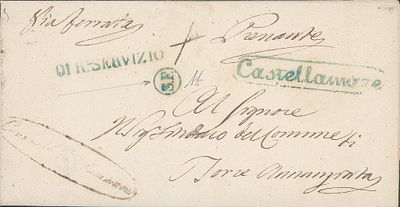 Via ferrata
Premante
DI R.SERVIZIO
S.F
Castellamare
Al Signore
Il Sig Sindaco del Comune di
Torre Annunziata